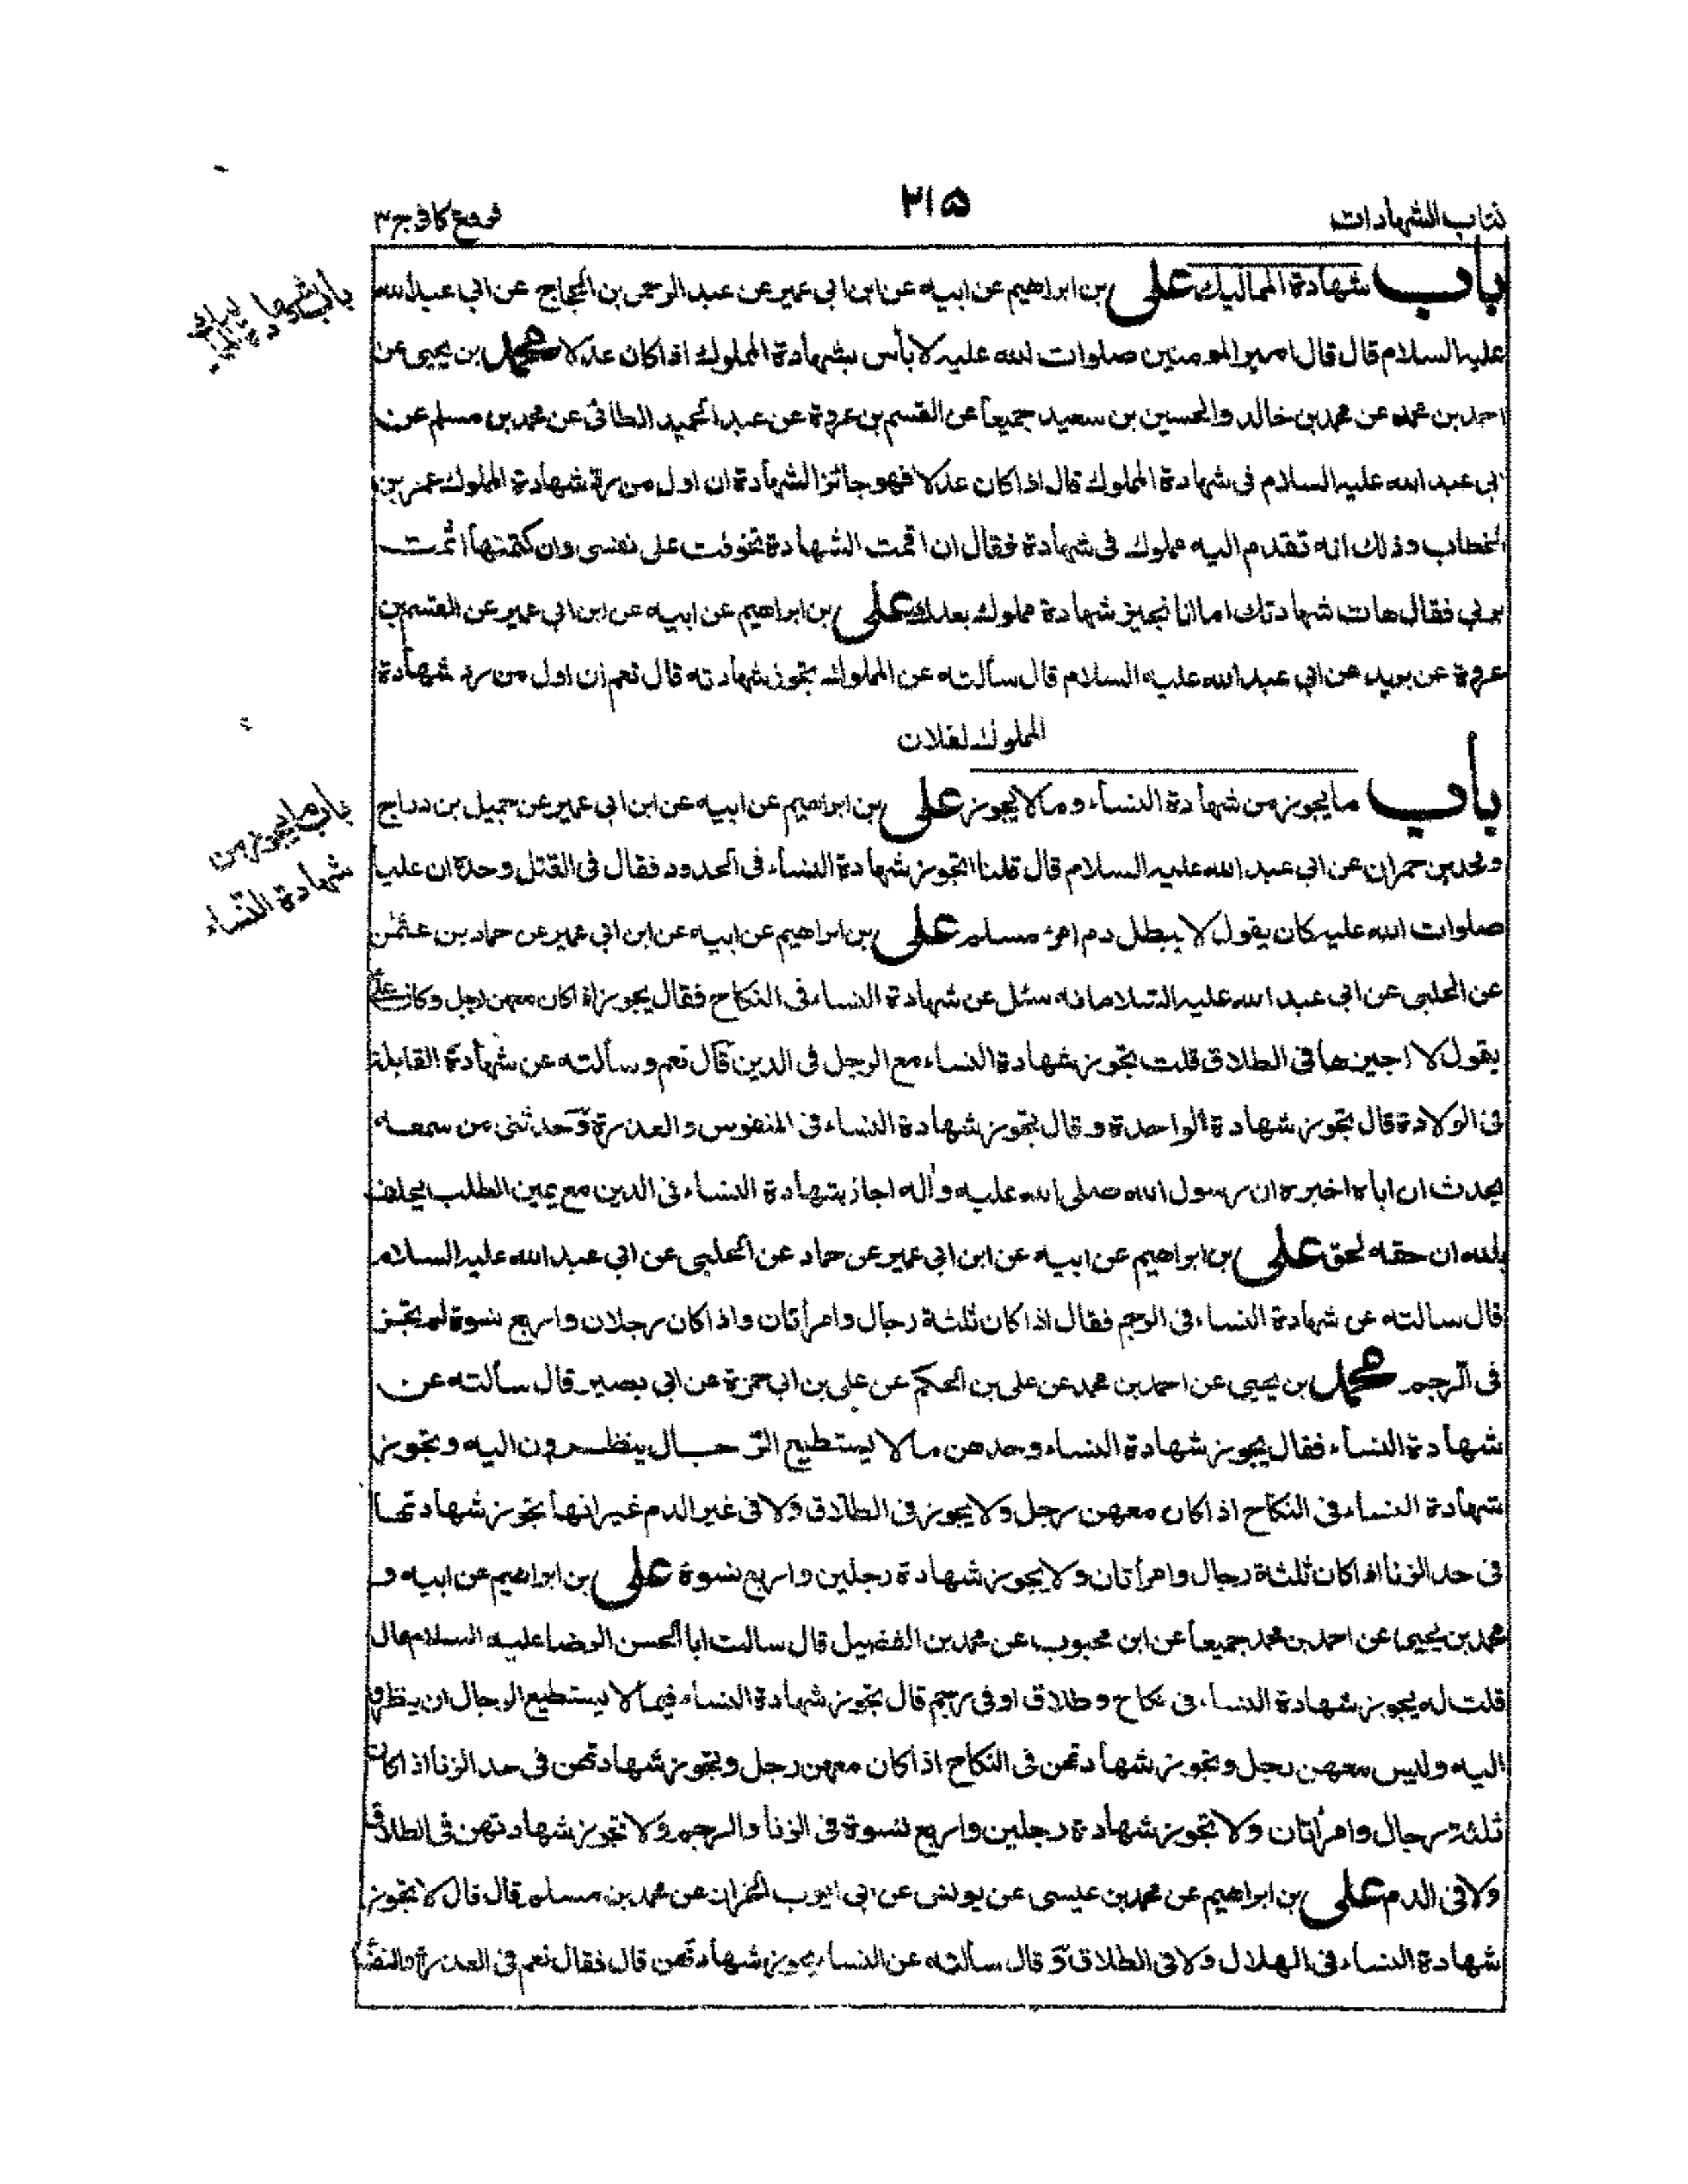 كتاب الشهادات
٢١٥
فروع كافى ج ٣
باب شهادة المماليك على بن ابراهيم عن ابيه عن ابن ابي عمير عن عبد الرحمن بن الحجاج عن ابي عبد الله
عليه السلام قال قال امير المومنين صلوات الله عليه لا بأس بشهادة المملوك اذا كان عدلا محمد بن يحيى عن
احمد بن محمد عن محمد بن خالد والحسين بن سعيد جميعا عن القسم بن عروة عن عبد الحميد الطائى عن محمد بن مسلم عن
ابي عبد الله عليه السلام فى شهادة المملوك قال اذا كان عدلا فهو جائز الشهادة ان اول من رد شهادة المملوك عمر بن
الخطاب وذلك انه تقدم اليه مملوك فى شهادة فقال ان اقمت الشهادة تخوفت على نفسى وان كتمتها اثمت
بربي فقال هات شهادتك اما انا نجيز شهادة مملوك بعدك على بن ابراهيم عن ابيه عن ابن ابي عمير عن القسم بن
عروة عن بريد عن ابي عبد الله عليه السلام قال سألته عن المملوك تجوز شهادته قال نعم ان اول من رد شهادة
المملوك لفلان
باب شهادة المماليك
باب ما يجوز من شهادة النساء وما لا يجوز على بن ابراهيم عن ابيه عن ابن ابي عمير عن جميل بن دراج
ومحمد بن حمران عن ابي عبد الله عليه السلام قال قلنا اتجوز شهادة النساء فى الحدود فقال فى القتل وحدة ان عليا
صلوات الله عليه كان يقول لا يبطل دم امرء مسلم على بن ابراهيم عن ابيه عن ابن ابي عمير عن حماد بن عثمن
عن الحلبى عن ابي عبد الله عليه السلام انه سئل عن شهادة النساء فى النكاح فقال يجوز اذا كان معهن رجل وكان على
يقول لا اجيزها فى الطلاق قلت تجوز شهادة النساء مع الرجل فى الدين قال نعم وسألته عن شهادة القابلة
فى الولادة قال تجوز شهادة الواحدة وقال تجوز شهادة النساء فى المنفوس والعذرة وحدثنى من سمعه
يحدث ان اباه اخبره ان رسول الله صلى الله عليه وآله اجاز شهادة النساء فى الدين مع يمين الطلب يحلف
بالله ان حقه لحق على بن ابراهيم عن ابيه عن ابن ابي عمير عن حماد عن الحلبى عن ابي عبد الله عليه السلام
قال سالته عن شهادة النساء فى الرجم فقال اذا كان ثلثة رجال وامرأتان واذا كان رجلان واربع نسوة لم يجز
فى الرجم محمد بن يحيى عن احمد بن محمد عن على بن الحكم عن على بن ابي حمزة عن ابي بصير قال سألته عن
شهادة النساء فقال يجوز شهادة النساء وحدهن ما لا يستطيع الرجال ينظرون اليه وتجوز
شهادة النساء فى النكاح اذا كان معهن رجل ولا يجوز فى الطلاق ولا فى غير الدم غير انها تجوز شهادتها
فى حد الزنا اذا كان ثلثة رجال وامرأتان ولا يجوز شهادة رجلين واربع نسوة على بن ابراهيم عن ابيه و
محمد بن يحيى عن احمد بن محمد جميعا عن ابن محبوب عن محمد بن الفضيل قال سالت ابا الحسن الرضا عليه السلام قال
قلت له يجوز شهادة النساء فى نكاح وطلاق او فى رجم قال تجوز شهادة النساء فيما لا يستطيع الرجال ان ينظروا
اليه وليس معهن رجل وتجوز شهادتهن فى النكاح اذا كان معهن رجل وتجوز شهادتهن فى حد الزنا اذا كان
ثلثة رجال وامرأتان ولا تجوز شهادة رجلين واربع نسوة فى الزنا والرجم ولا تجوز شهادتهن فى الطلاق
ولا فى الدم على بن ابراهيم عن محمد بن عيسى عن يونس عن ابي ايوب الخزان عن محمد بن مسلم قال قال لا تجوز
شهادة النساء فى الهلال ولا فى الطلاق وقال سألته عن النساء يجوز شهادتهن قال فقال نعم فى العذرة والنفساء
باب ما يجوز من
شهادة النساء